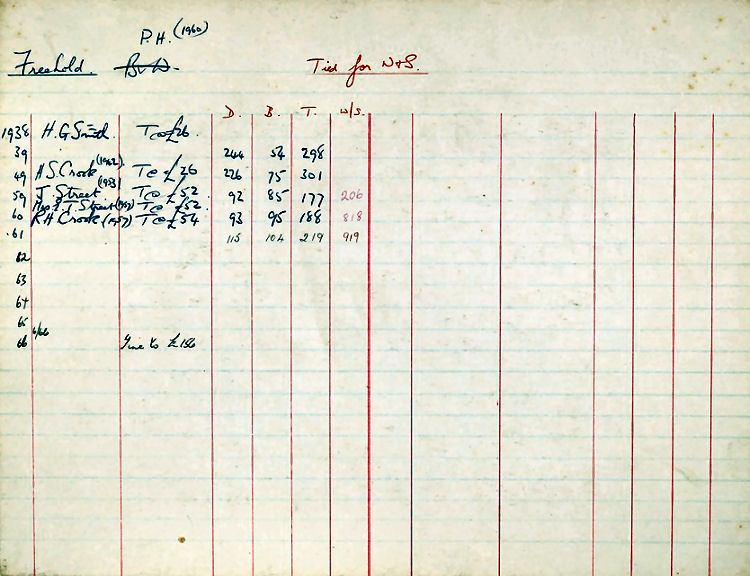 P.H. (1960)
Freehold. B.W. Tied for W&S.
D. B. T. W/S.
1938 H.G Smith. T@£26.
39 244 54 298
49 H S. Crook (1942). T@ £26 226 75 301
59 J. Street (1953) T@ £52 92 85 177 206
Mrs E.T. Street (1957) T@ £52
60 R H Crook (1957) T@ £54 93 95 188 818
.61 115 104 219 919
62
63
64
65
66 6/66 Tenc to £156